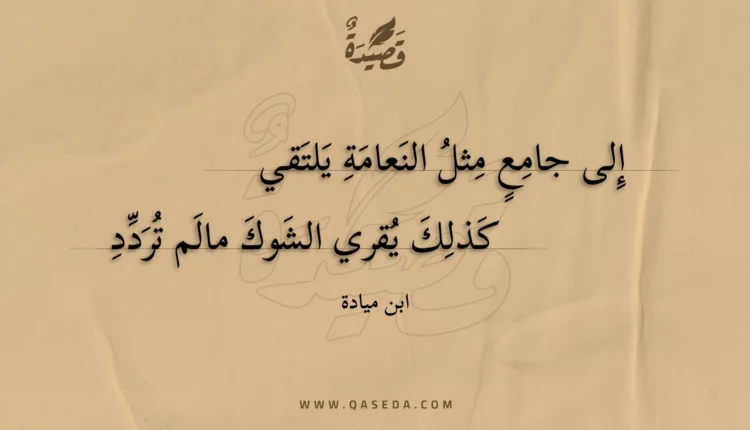 قَصِيدَةٌ
إِلى جامِعٍ مِثلُ النَعامَةِ يَلتَقي
كَذلِكَ يُقري الشَوكَ مالَم تُرَدِّدِ
ابن ميادة
WWW.QASEDA.COM